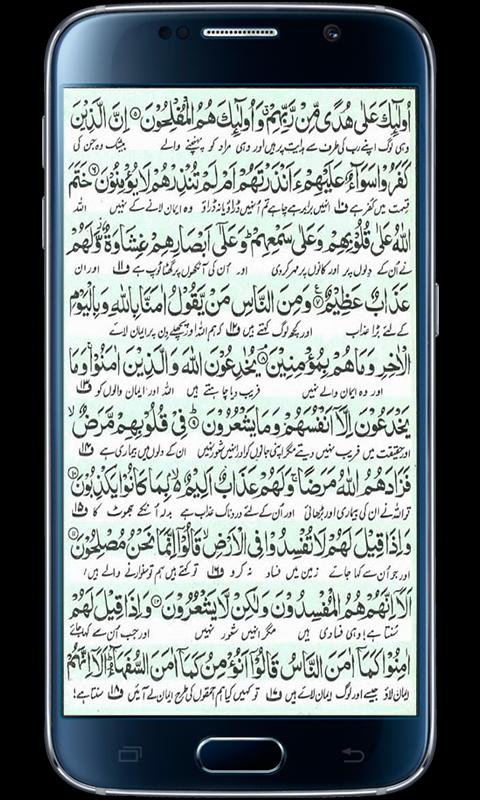 اُولٰٓئِكَ عَلٰى هُدًى مِّنْ رَّبِّهِمْ وَاُولٰٓئِكَ هُمُ الْمُفْلِحُوْنَ ۝ اِنَّ الَّذِيْنَ
وہی لوگ اپنے رب کی طرف سے ہدایت پر ہیں اور وہی مراد کو پہنچنے والے بیشک وہ جن کی
كَفَرُوْا سَوَآءٌ عَلَيْهِمْ ءَاَنْذَرْتَهُمْ اَمْ لَمْ تُنْذِرْهُمْ لَا يُؤْمِنُوْنَ ۝ خَتَمَ
قسمت میں کفر ہے انہیں برابر ہے چاہے تم اُنہیں ڈراؤ یا نہ ڈراؤ وہ ایمان لانے کے نہیں اللہ
اللّٰهُ عَلٰى قُلُوْبِهِمْ وَعَلٰى سَمْعِهِمْ وَعَلٰٓى اَبْصَارِهِمْ غِشَاوَةٌ وَّلَهُمْ
نے اُن کے دلوں پر اور کانوں پر مہر کردی اور اُن کی آنکھوں پر گھٹاٹوپ ہے اور ان
عَذَابٌ عَظِيْمٌ ۝ وَمِنَ النَّاسِ مَنْ يَّقُوْلُ اٰمَنَّا بِاللّٰهِ وَبِالْيَوْمِ
کے لئے بڑا عذاب اور کچھ لوگ کہتے ہیں کہ ہم اللہ اور پچھلے دن پر ایمان لائے
الْاٰخِرِ وَمَا هُمْ بِمُؤْمِنِيْنَ ۝ يُخٰدِعُوْنَ اللّٰهَ وَالَّذِيْنَ اٰمَنُوْا وَمَا
اور وہ ایمان والے نہیں فریب دیا چاہتے ہیں اللہ اور ایمان والوں کو
يَخْدَعُوْنَ اِلَّآ اَنْفُسَهُمْ وَمَا يَشْعُرُوْنَ ۝ فِيْ قُلُوْبِهِمْ مَّرَضٌ
اور حقیقت میں فریب نہیں دیتے مگر اپنی جانوں کو اور انہیں شعور نہیں ان کے دلوں میں بیماری ہے
فَزَادَهُمُ اللّٰهُ مَرَضًا وَلَهُمْ عَذَابٌ اَلِيْمٌۢ بِمَا كَانُوْا يَكْذِبُوْنَ ۝
تو اللہ نے ان کی بیماری اور بڑھائی اور اُن کے لئے دردناک عذاب ہے بدلہ اُنکے جھوٹ کا
وَاِذَا قِيْلَ لَهُمْ لَا تُفْسِدُوْا فِي الْاَرْضِ قَالُوْٓا اِنَّمَا نَحْنُ مُصْلِحُوْنَ ۝
اور جو اُن سے کہا جائے زمین میں فساد نہ کرو تو کہتے ہیں ہم تو سنوارنے والے ہیں
اَلَآ اِنَّهُمْ هُمُ الْمُفْسِدُوْنَ وَلٰكِنْ لَّا يَشْعُرُوْنَ ۝ وَاِذَا قِيْلَ لَهُمْ
سُنتا ہے! وہی فسادی ہیں مگر انہیں شعور نہیں اور جب اُن سے کہا جائے
اٰمِنُوْا كَمَآ اٰمَنَ النَّاسُ قَالُوْٓا اَنُؤْمِنُ كَمَآ اٰمَنَ السُّفَهَآءُ اَلَآ اِنَّهُمْ
ایمان لاؤ جیسے اور لوگ ایمان لائے ہیں تو کہیں کیا ہم احمقوں کی طرح ایمان لے آئیں سنتا ہے!